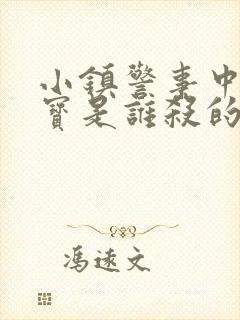 小鎮警事中
寶是誰殺的
馮遠文